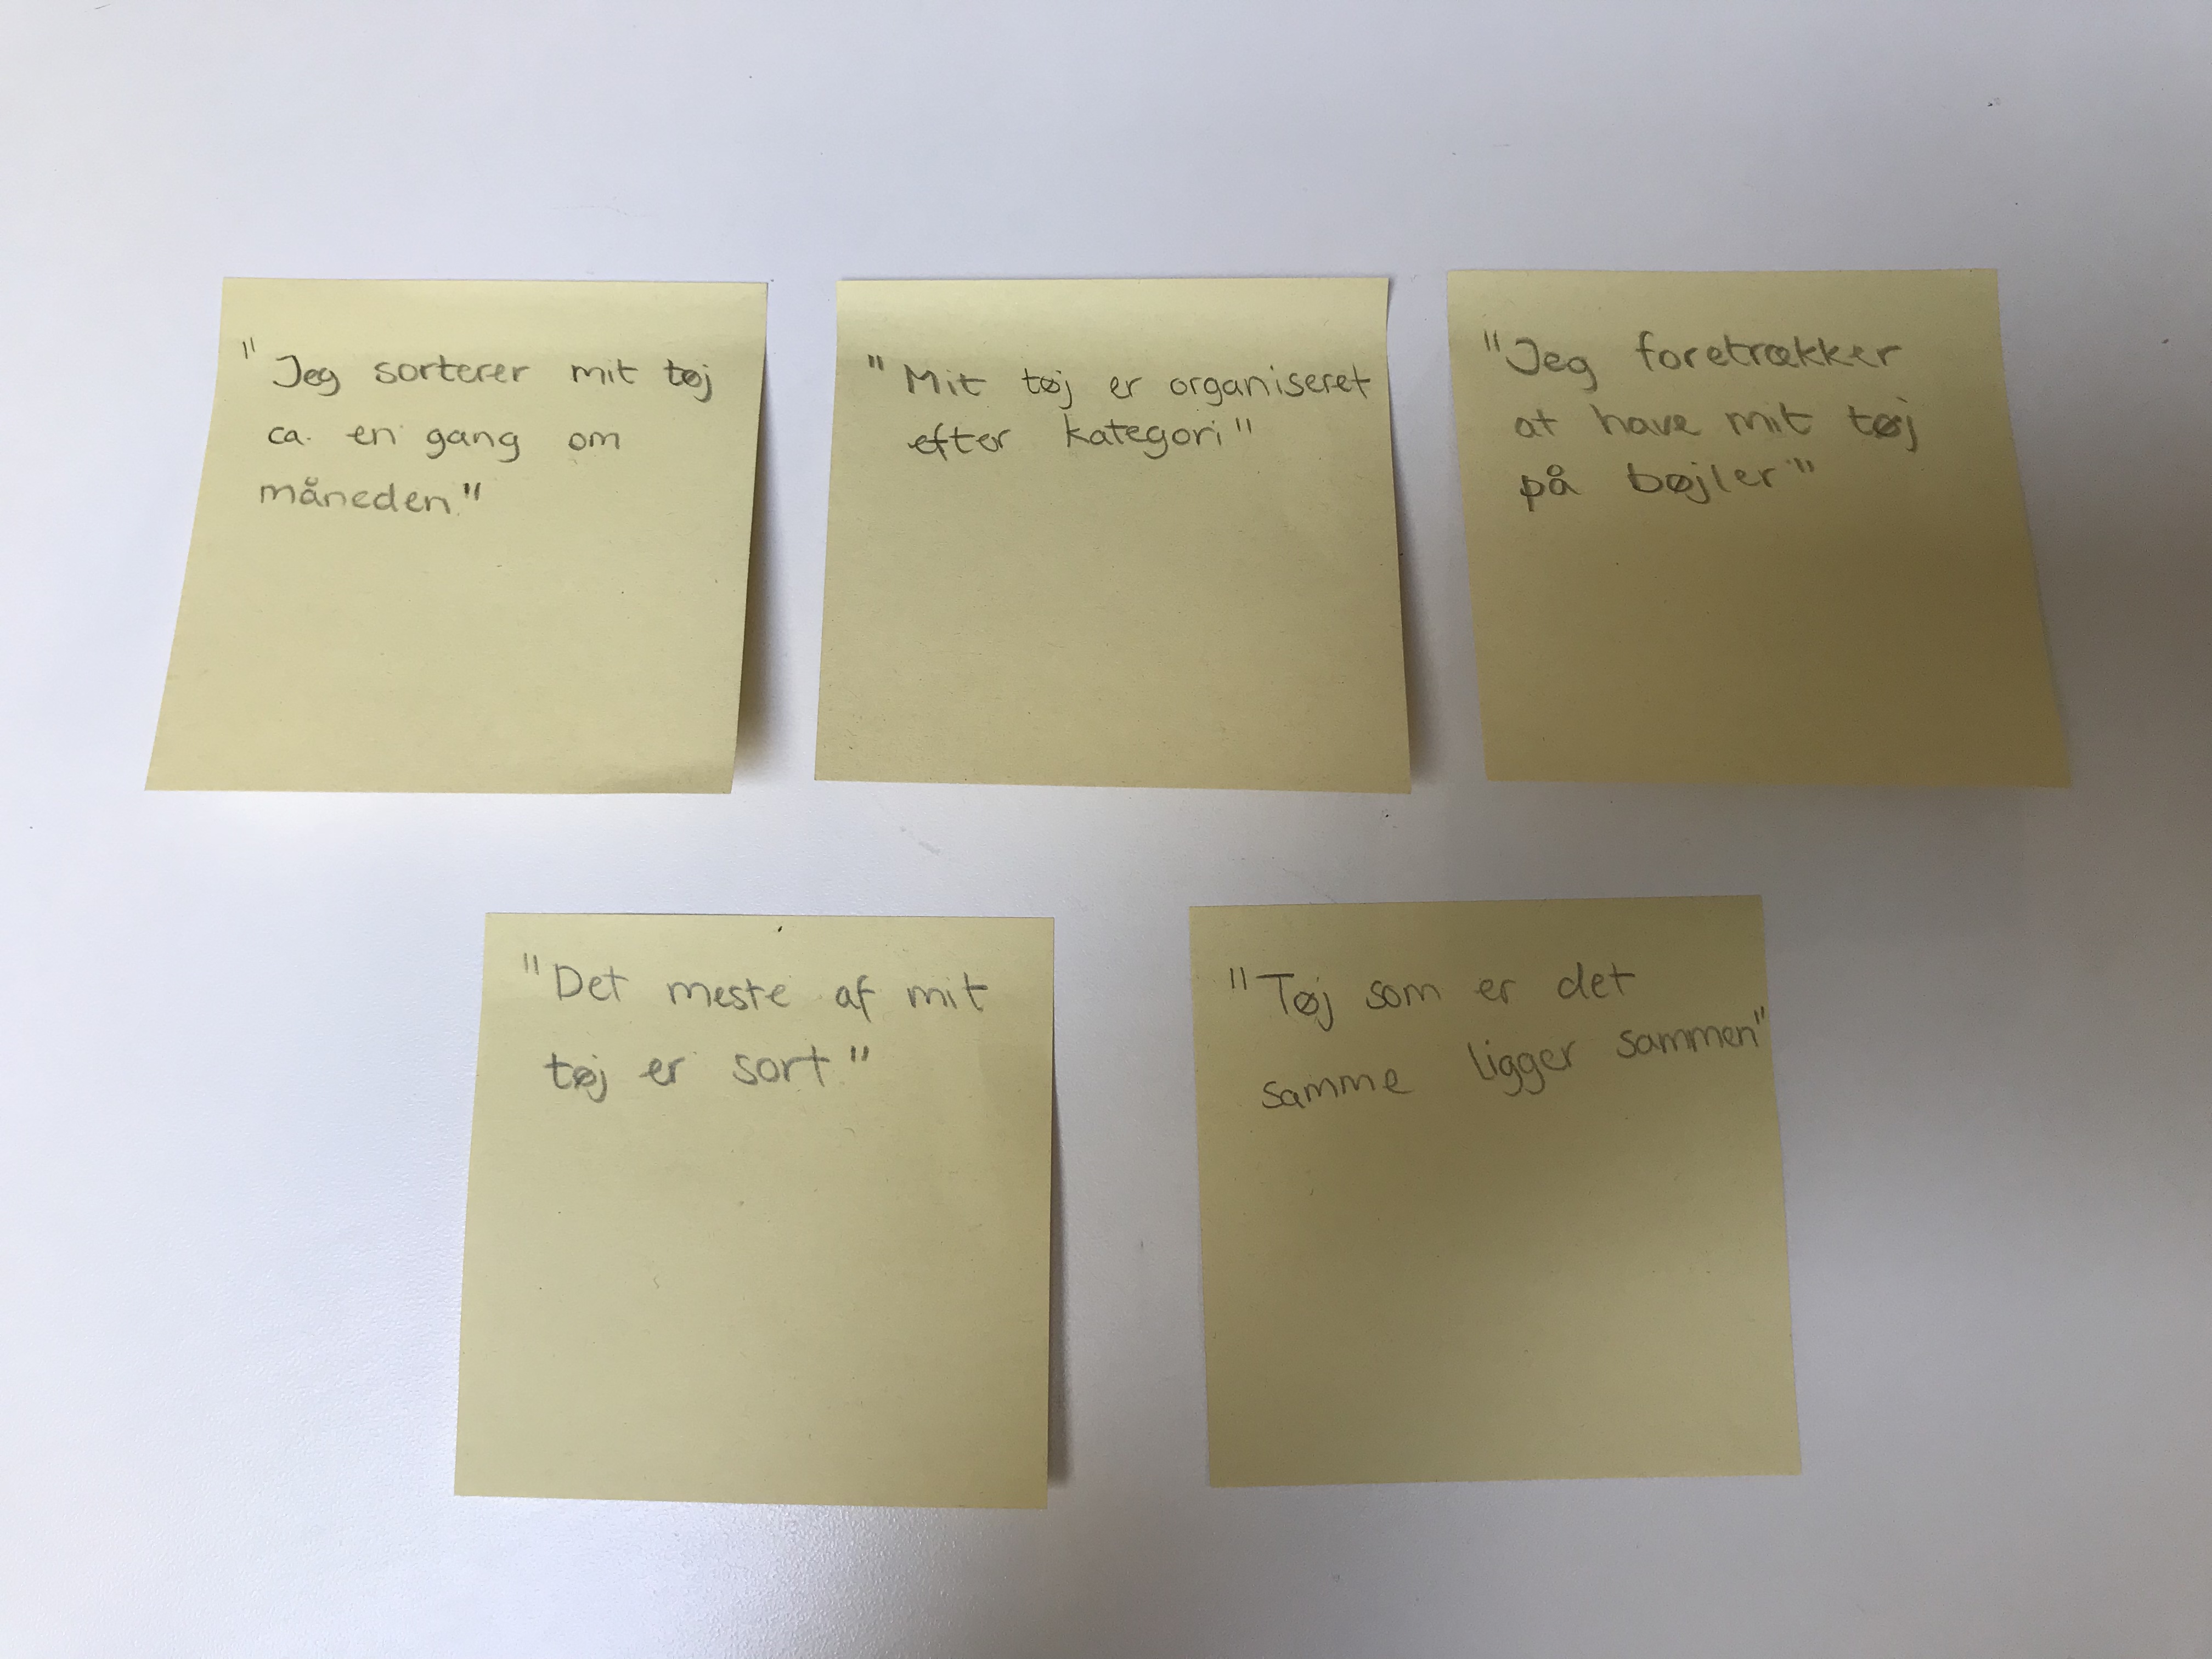 "Jeg sorterer mit tøj
ca. en gang om
måneden."
"Mit tøj er organiseret
efter kategori"
"Jeg foretrækker
at have mit tøj
på bøjler"
"Det meste af mit
tøj er sort."
"Tøj som er det
samme ligger sammen"